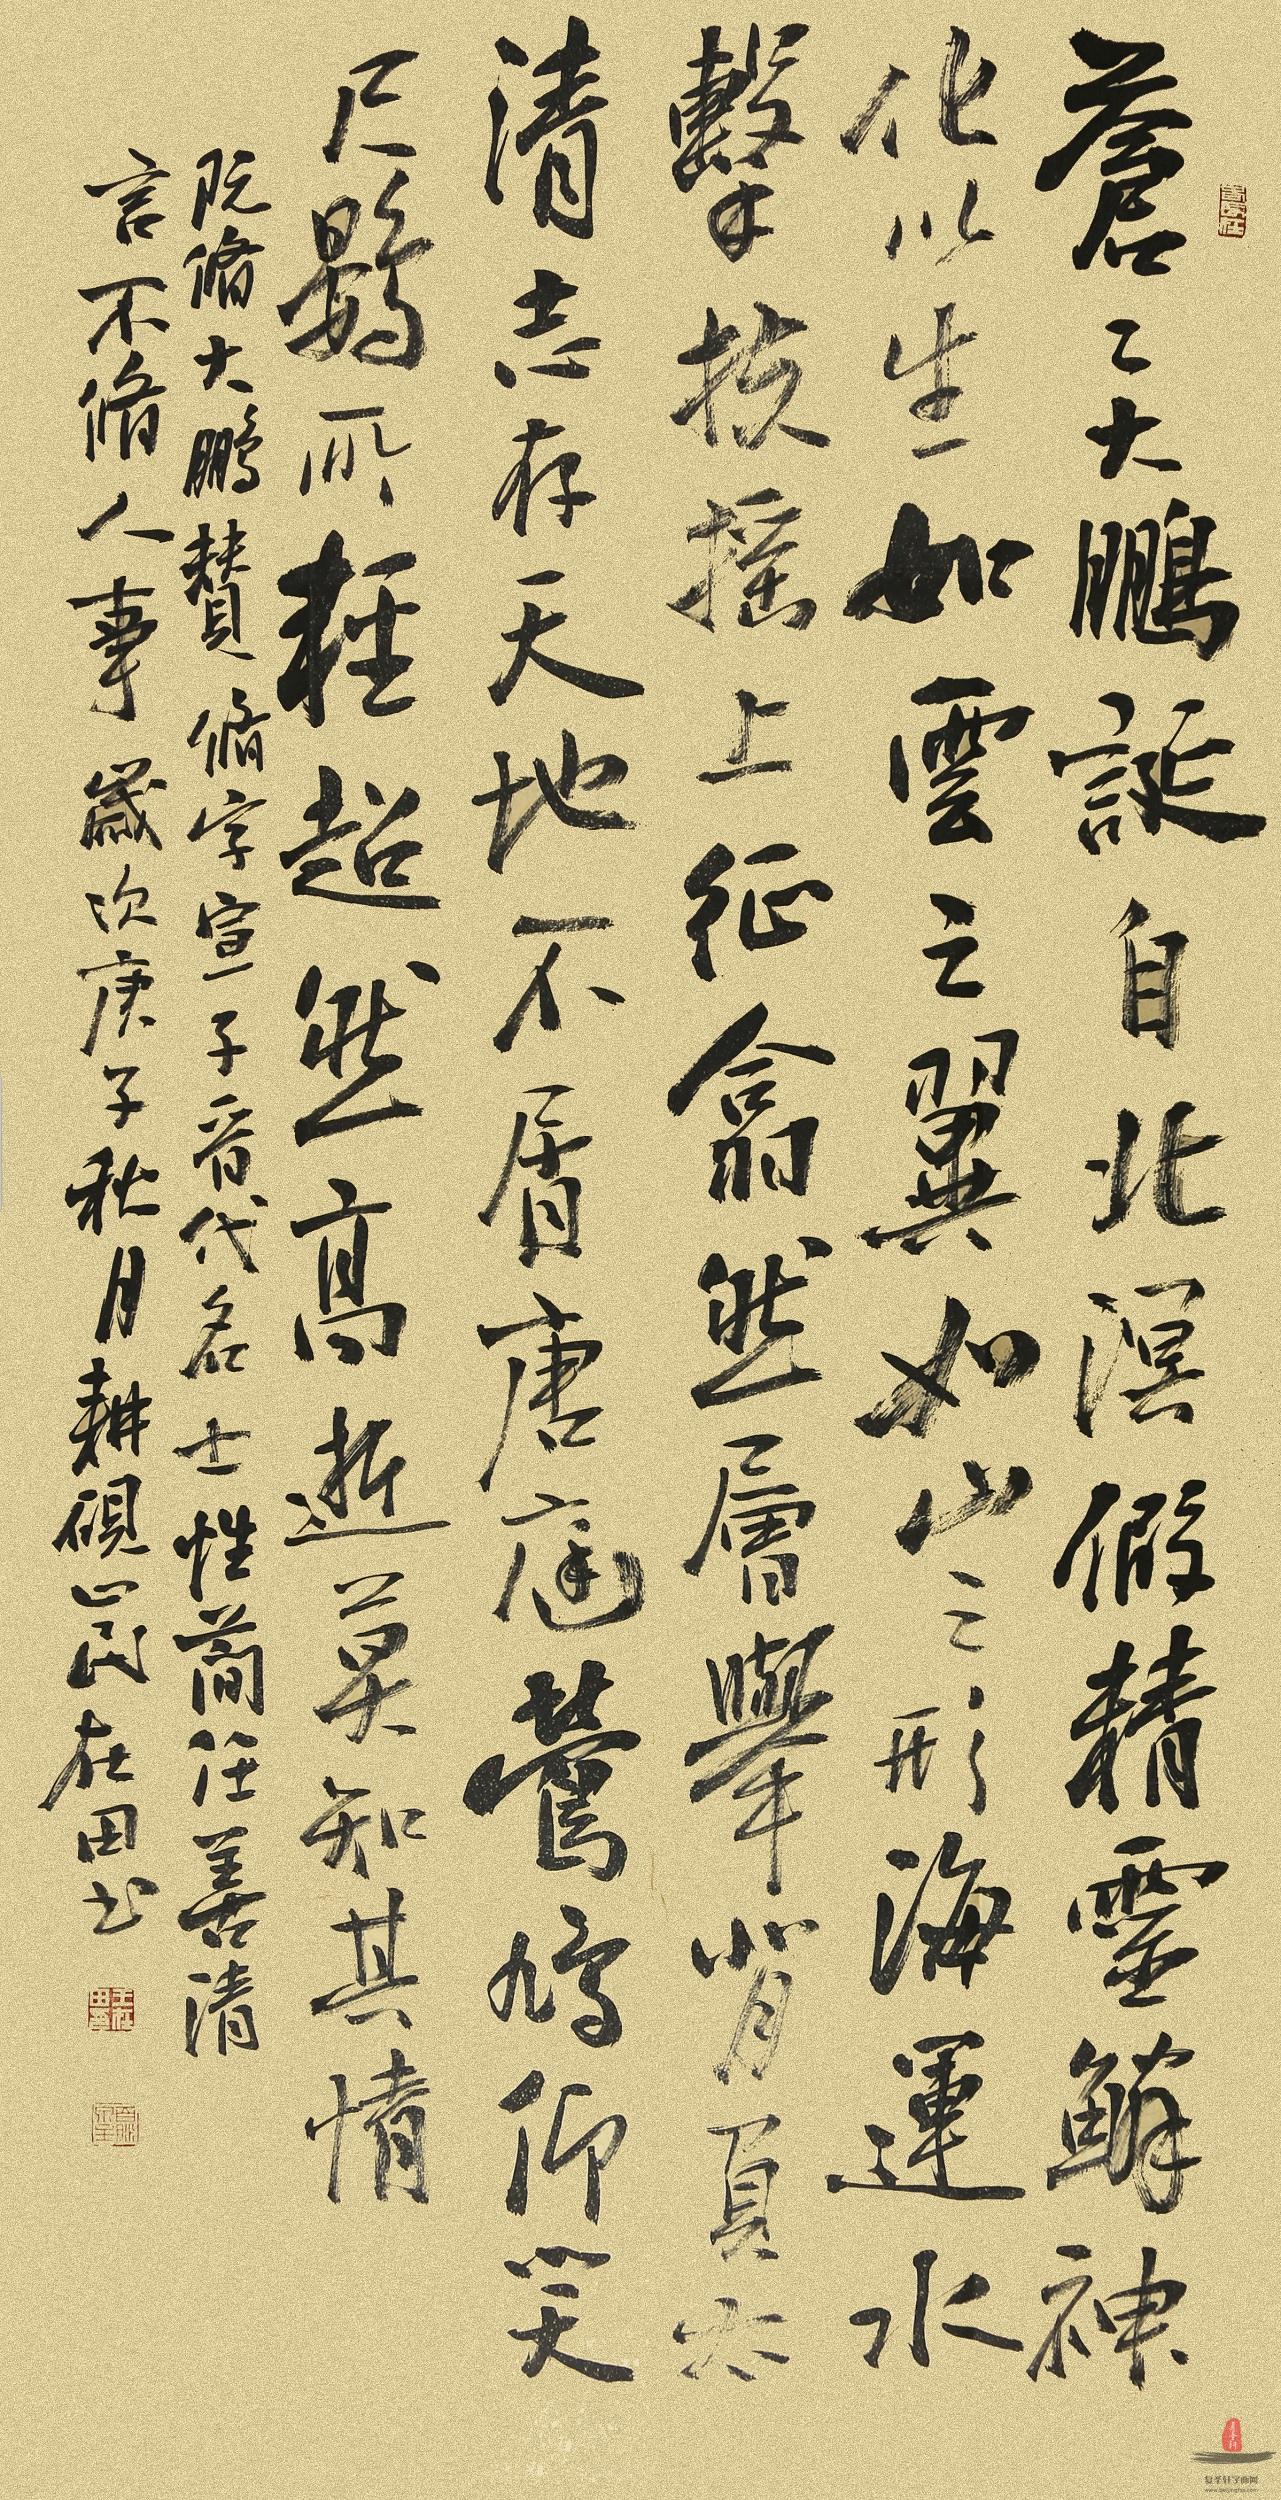 蒼〻大鵬誕自北溟假精靈鱗神
化以生如雲之翼如山之形海運水
擊扶搖上征翕然層舉背負太
清志存天地不屑唐庭鶯鳩仰笑
尺鷃所輕超然高逝莫知其情
阮脩大鵬贊脩字宣子晉代名士性簡任善清
言不脩人事歲次庚子秋月耕硯山民在田书